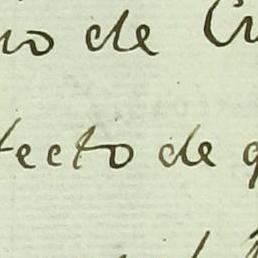 no de Cu
fecto de q